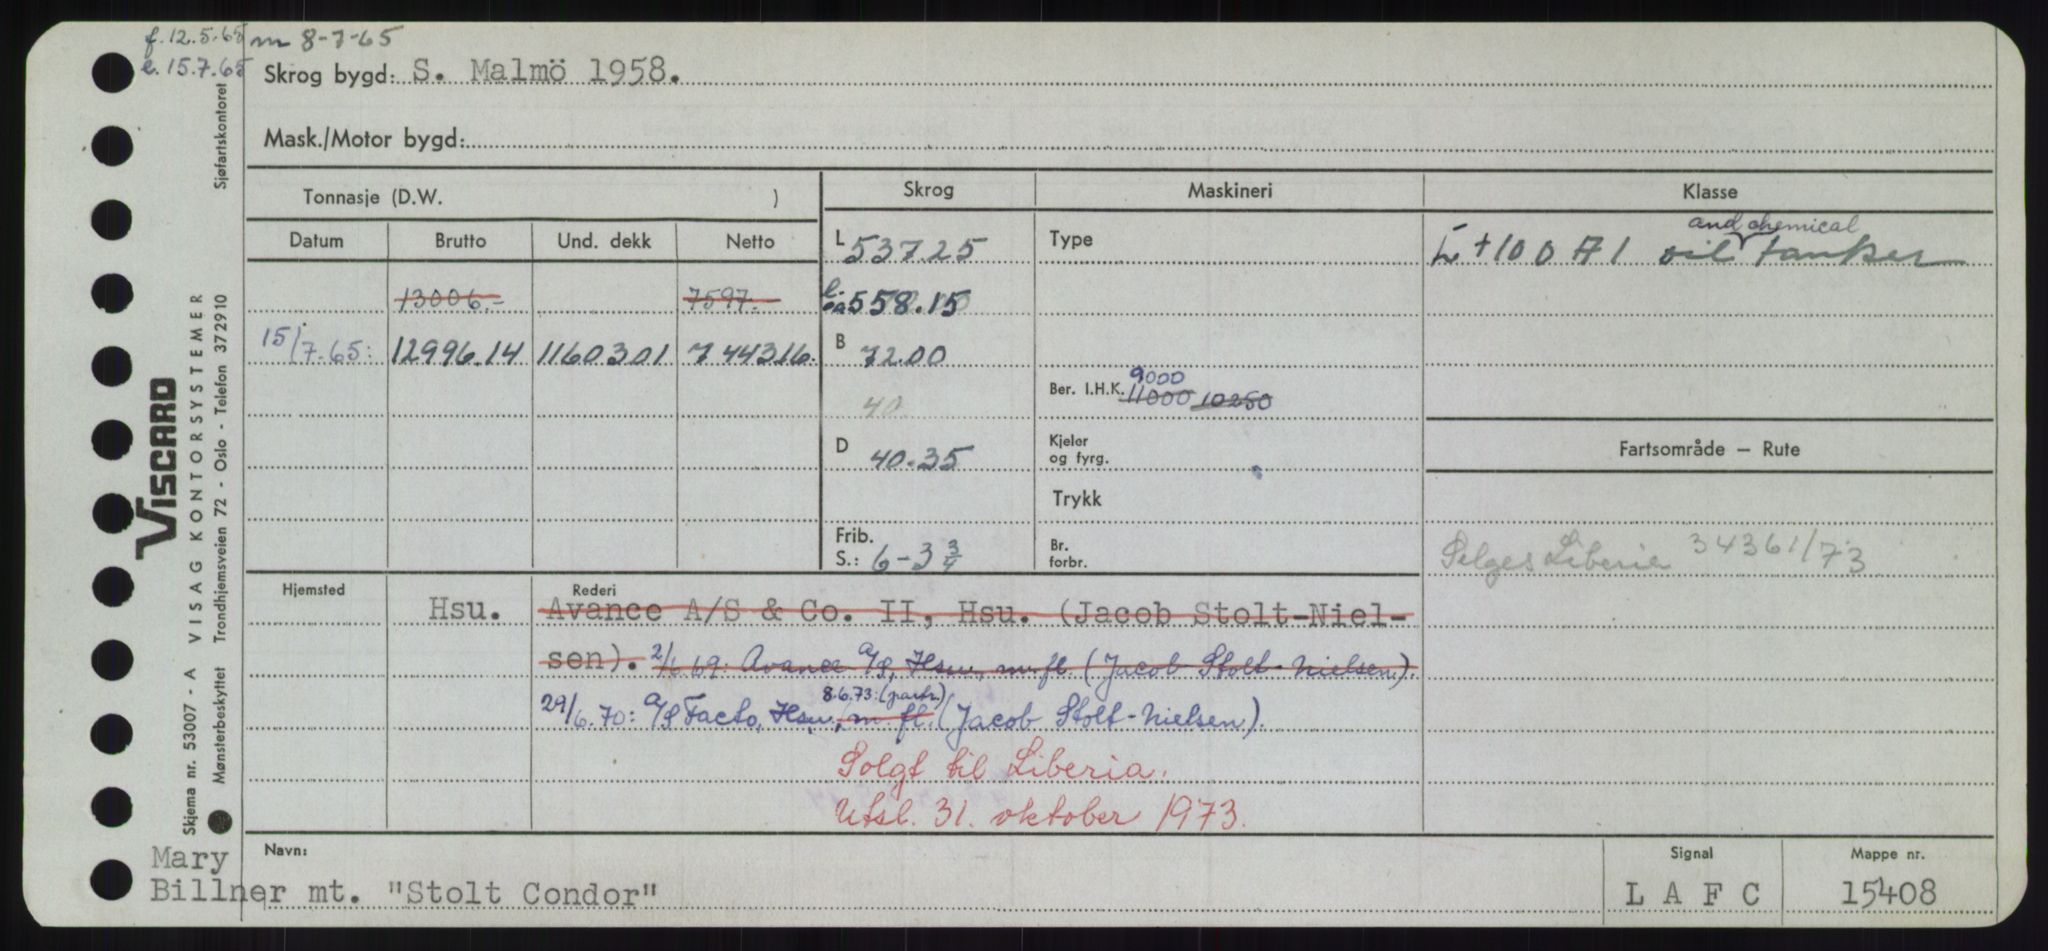 f. 12.5.65 m 8-7-65
e. 15.7.65
Skrog bygd: S. Malmö 1958.
Mask./Motor bygd:
Tonnasje (D.W. ) Skrog Maskineri Klasse
Datum Brutto Und. dekk Netto
L 537.25 Type Ł +100 A1 oil and chemical tanker
13006.- 7597.-
l. oa 558.15
15/7.65: 12996.14 11603.01 7443.16. B 72.00
Ber. I.H.K. 9000 11000 10250
40
D 40.35 Kjeler og fyrg. Fartsområde — Rute
Trykk
Frib. S.: 6-3 3/4 Br. forbr.
Selges Liberia 34361/73
Hjemsted Hsu.
Rederi Avance A/S & Co. II, Hsu. (Jacob Stolt-Niel-
sen). 2/6.69: Avance A/S, Hsu, m.fl. (Jacob Stolt-Nielsen).
29/6.70: A/S Facto, Hsu, m. fl. 8.6.73: (partr.) (Jacob Stolt-Nielsen).
Solgt til Liberia.
Utsl. 31. oktober 1973.
Navn: Signal Mappe nr.
Mary
Billner mt. "Stolt Condor" L A F C 15408
Skjema nr. 53007 - A VISAG KONTORSYSTEMER
VISCARD
Mønsterbeskyttet Trondhjemsveien 72 - Oslo - Telefon 372910 Sjøfartskontoret